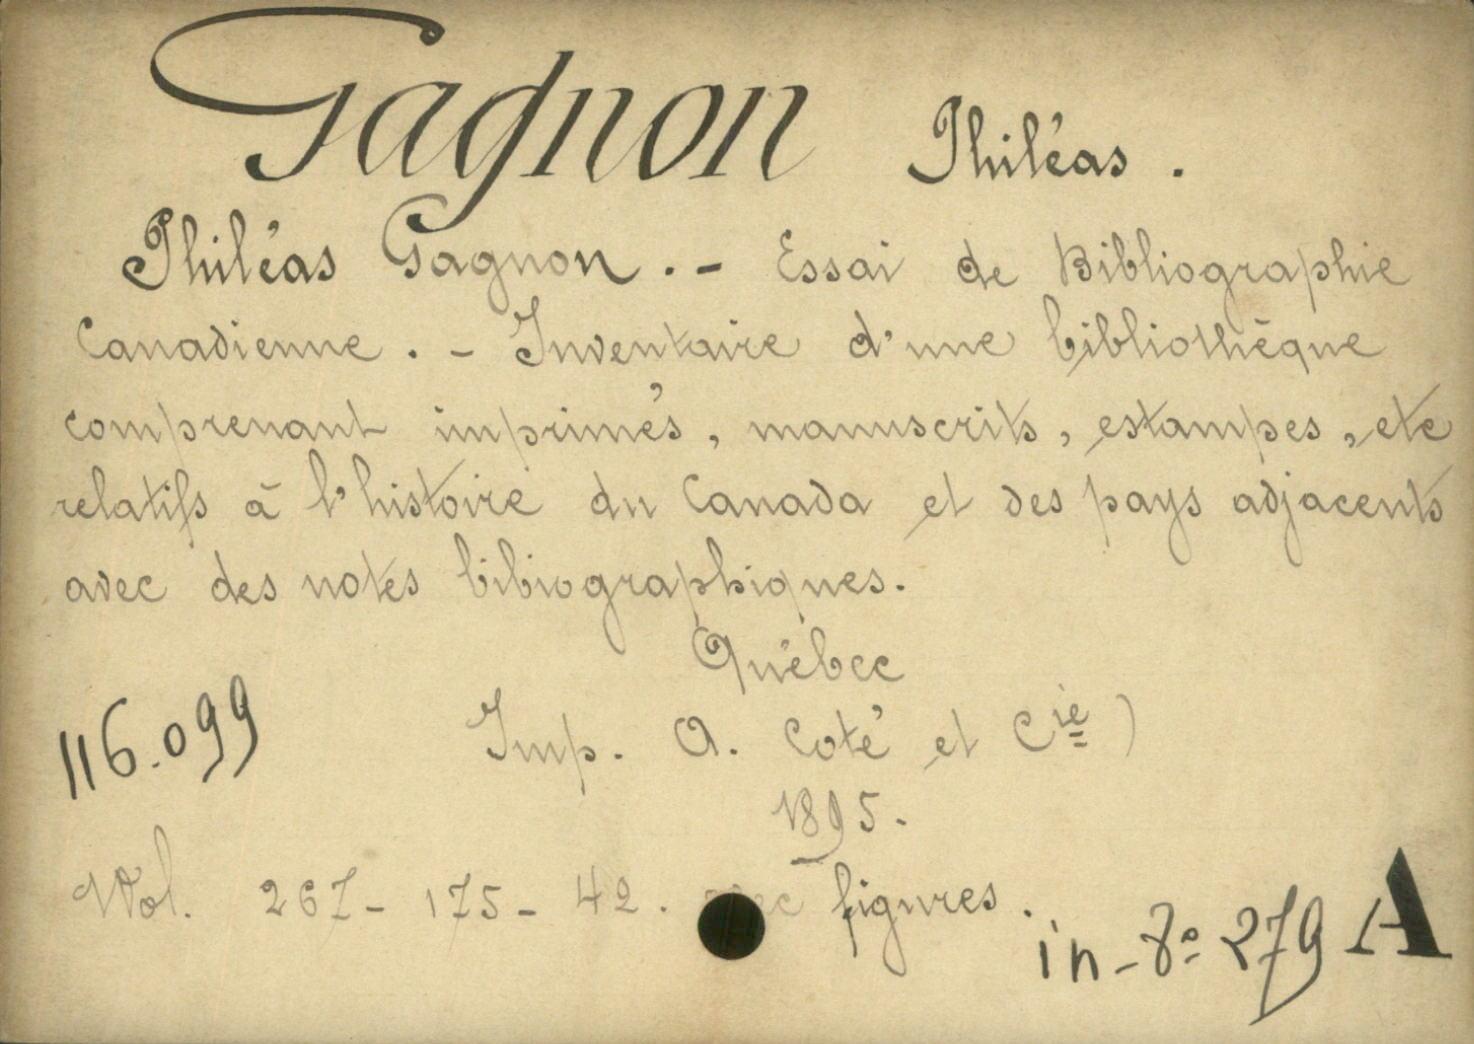 Gagnon Philéas.
Philéas Gagnon. - Essai de Bibliographie
Canadienne. - Inventaire d'une bibliothèque
comprenant imprimés, manuscrits, estampes, etc
relatifs à l'histoire du Canada et des pays adjacents
avec des notes bibiographiques.
Québec
116.099 Imp. A. Coté et Cie)
1895.
Vol. 267 - 175 - 42. avec figures.
in-8º 279 A